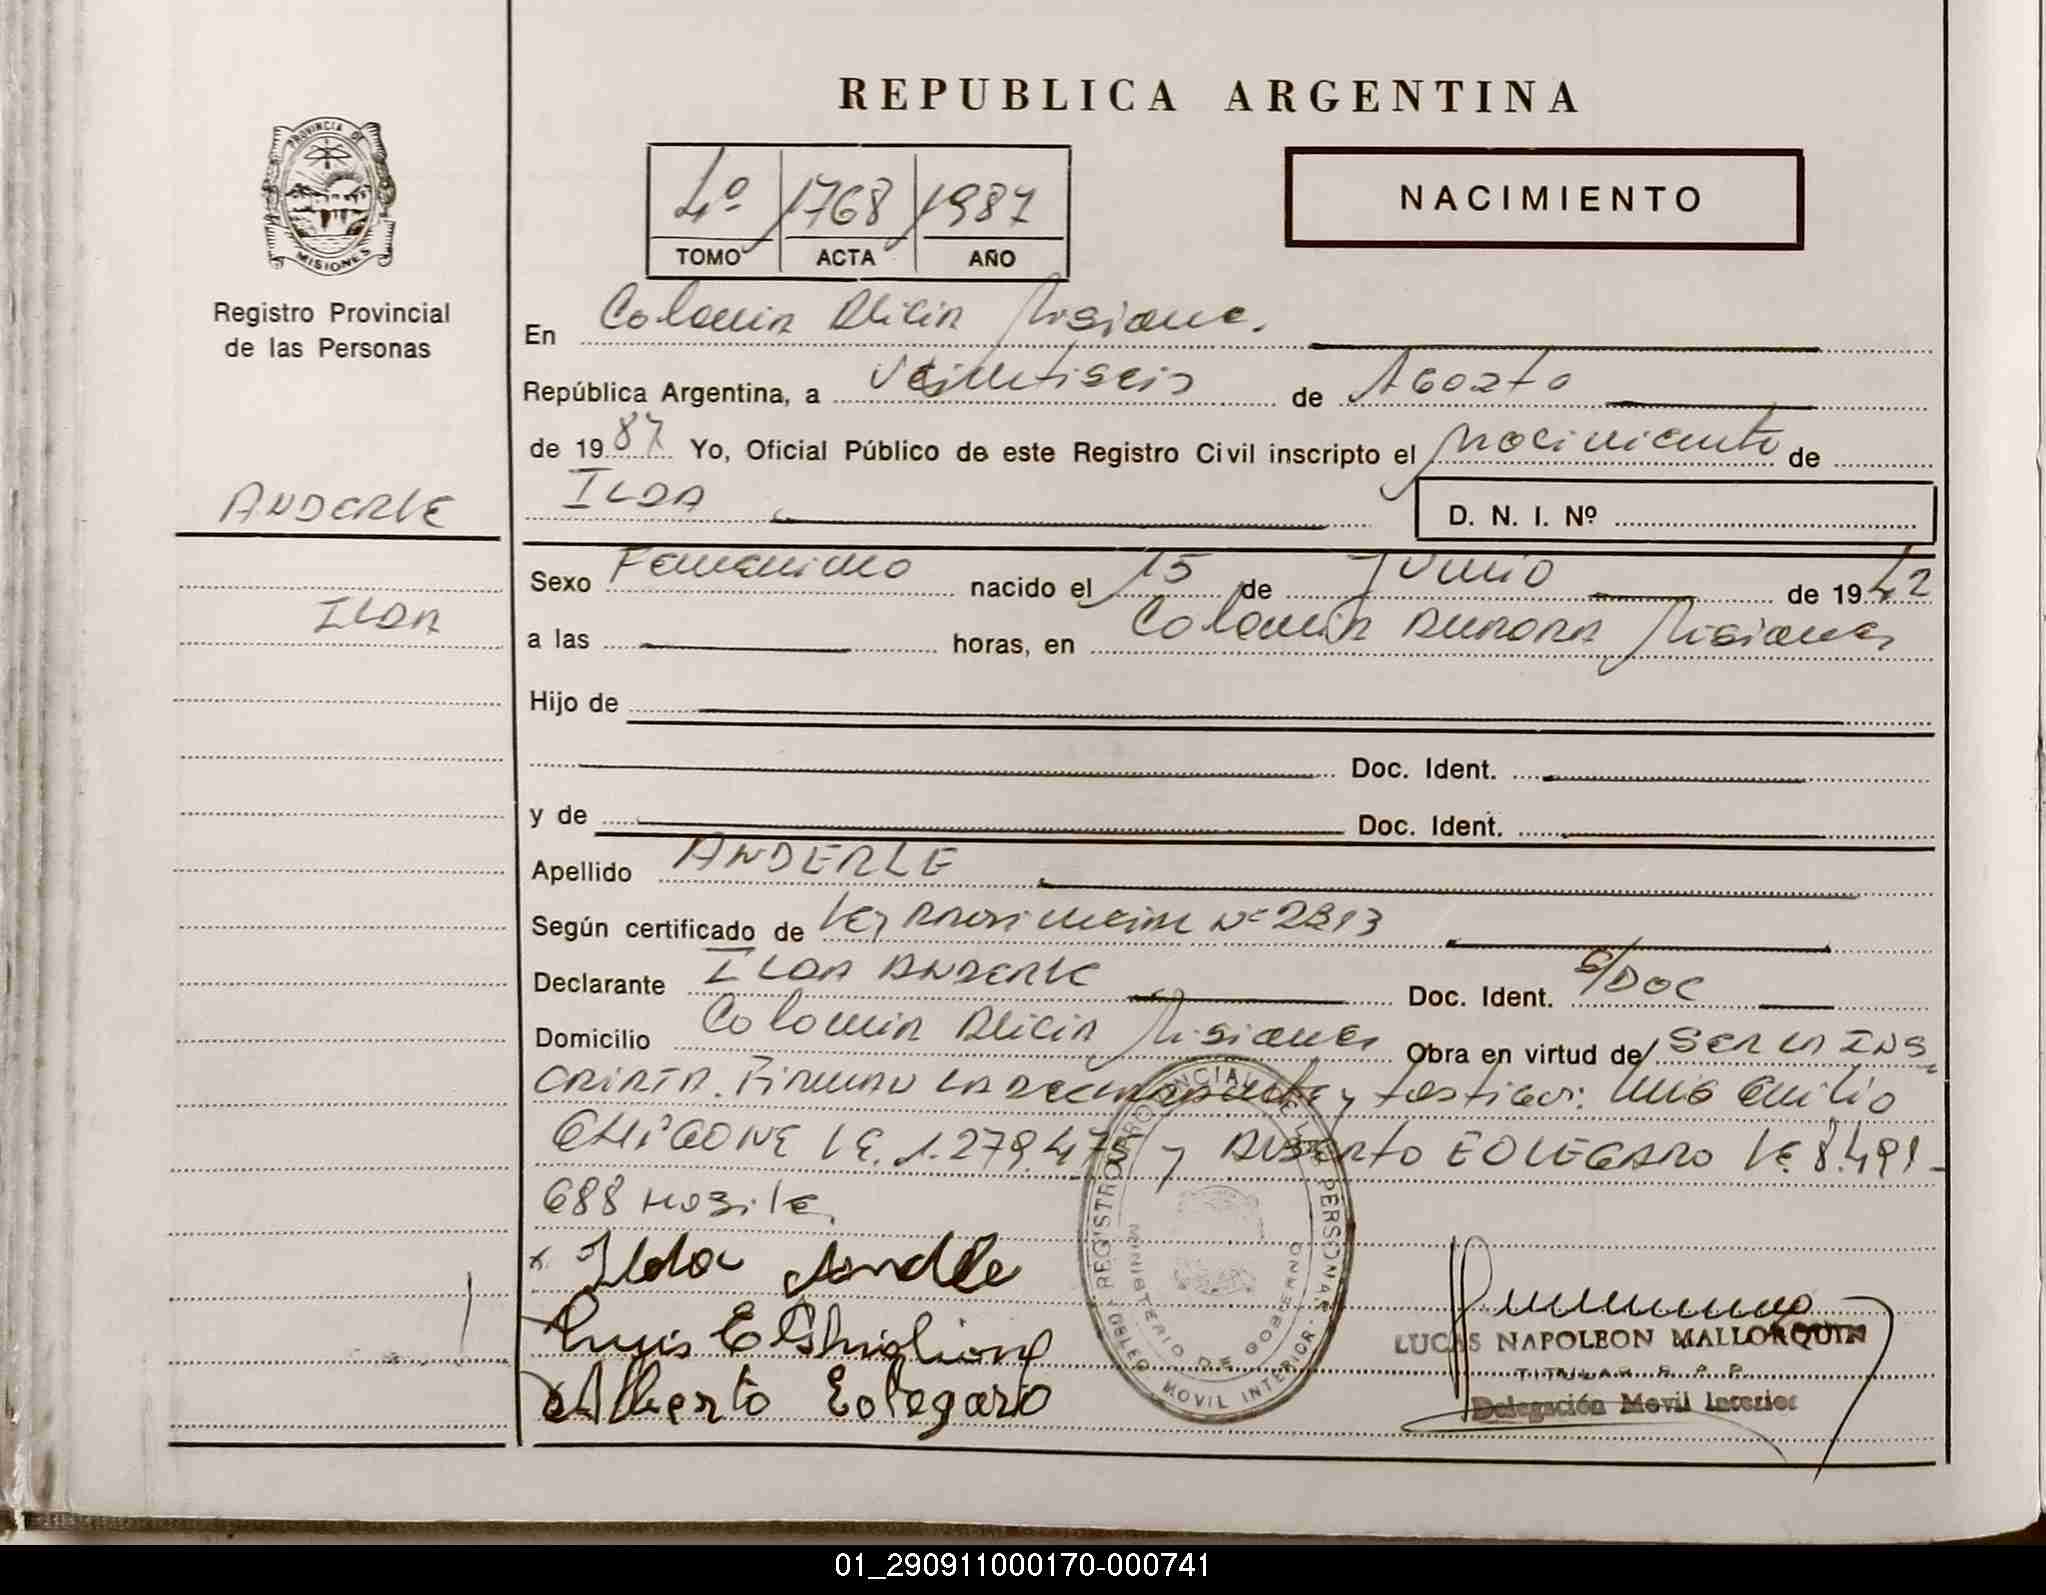 REPUBLICA ARGENTINA
PROVINCIA DE
MISIONES
Registro Provincial
de las Personas
4º 1768 1987
TOMO ACTA AÑO
NACIMIENTO
En Colonia Alicia Misiones.
República Argentina, a veintiseis de Agosto
de 1987 Yo, Oficial Público de este Registro Civil inscripto el nacimiento de
ANDERLE
ILDA
ILDA D. N. I. Nº
Sexo Femenino nacido el 15 de Junio de 1942
a las horas, en Colonia Aurora Misiones
Hijo de
Doc. Ident.
y de Doc. Ident.
Apellido ANDERLE
Según certificado de Ley Provincial Nº 2313
Declarante ILDA ANDERLE Doc. Ident. S/DOC
Domicilio Colonia Alicia Misiones Obra en virtud de SER LA INS
CRIPTA. Firman la declarante y testigos: Luis Emilio
LE. 1.279.475 y Alberto EOLEGARO LE. 8.491-
688 Hosile.
x Ilda Anderle
Luis E Ghiglione
x Alberto Eolegaro
REGISTRO PROVINCIAL DE LAS PERSONAS
MINISTERIO DE GOBIERNO
MOVIL INTERIOR
LUCAS NAPOLEON MALLORQUIN
TITULAR R. P. P.
Delegación Movil Interior
01_290911000170-000741